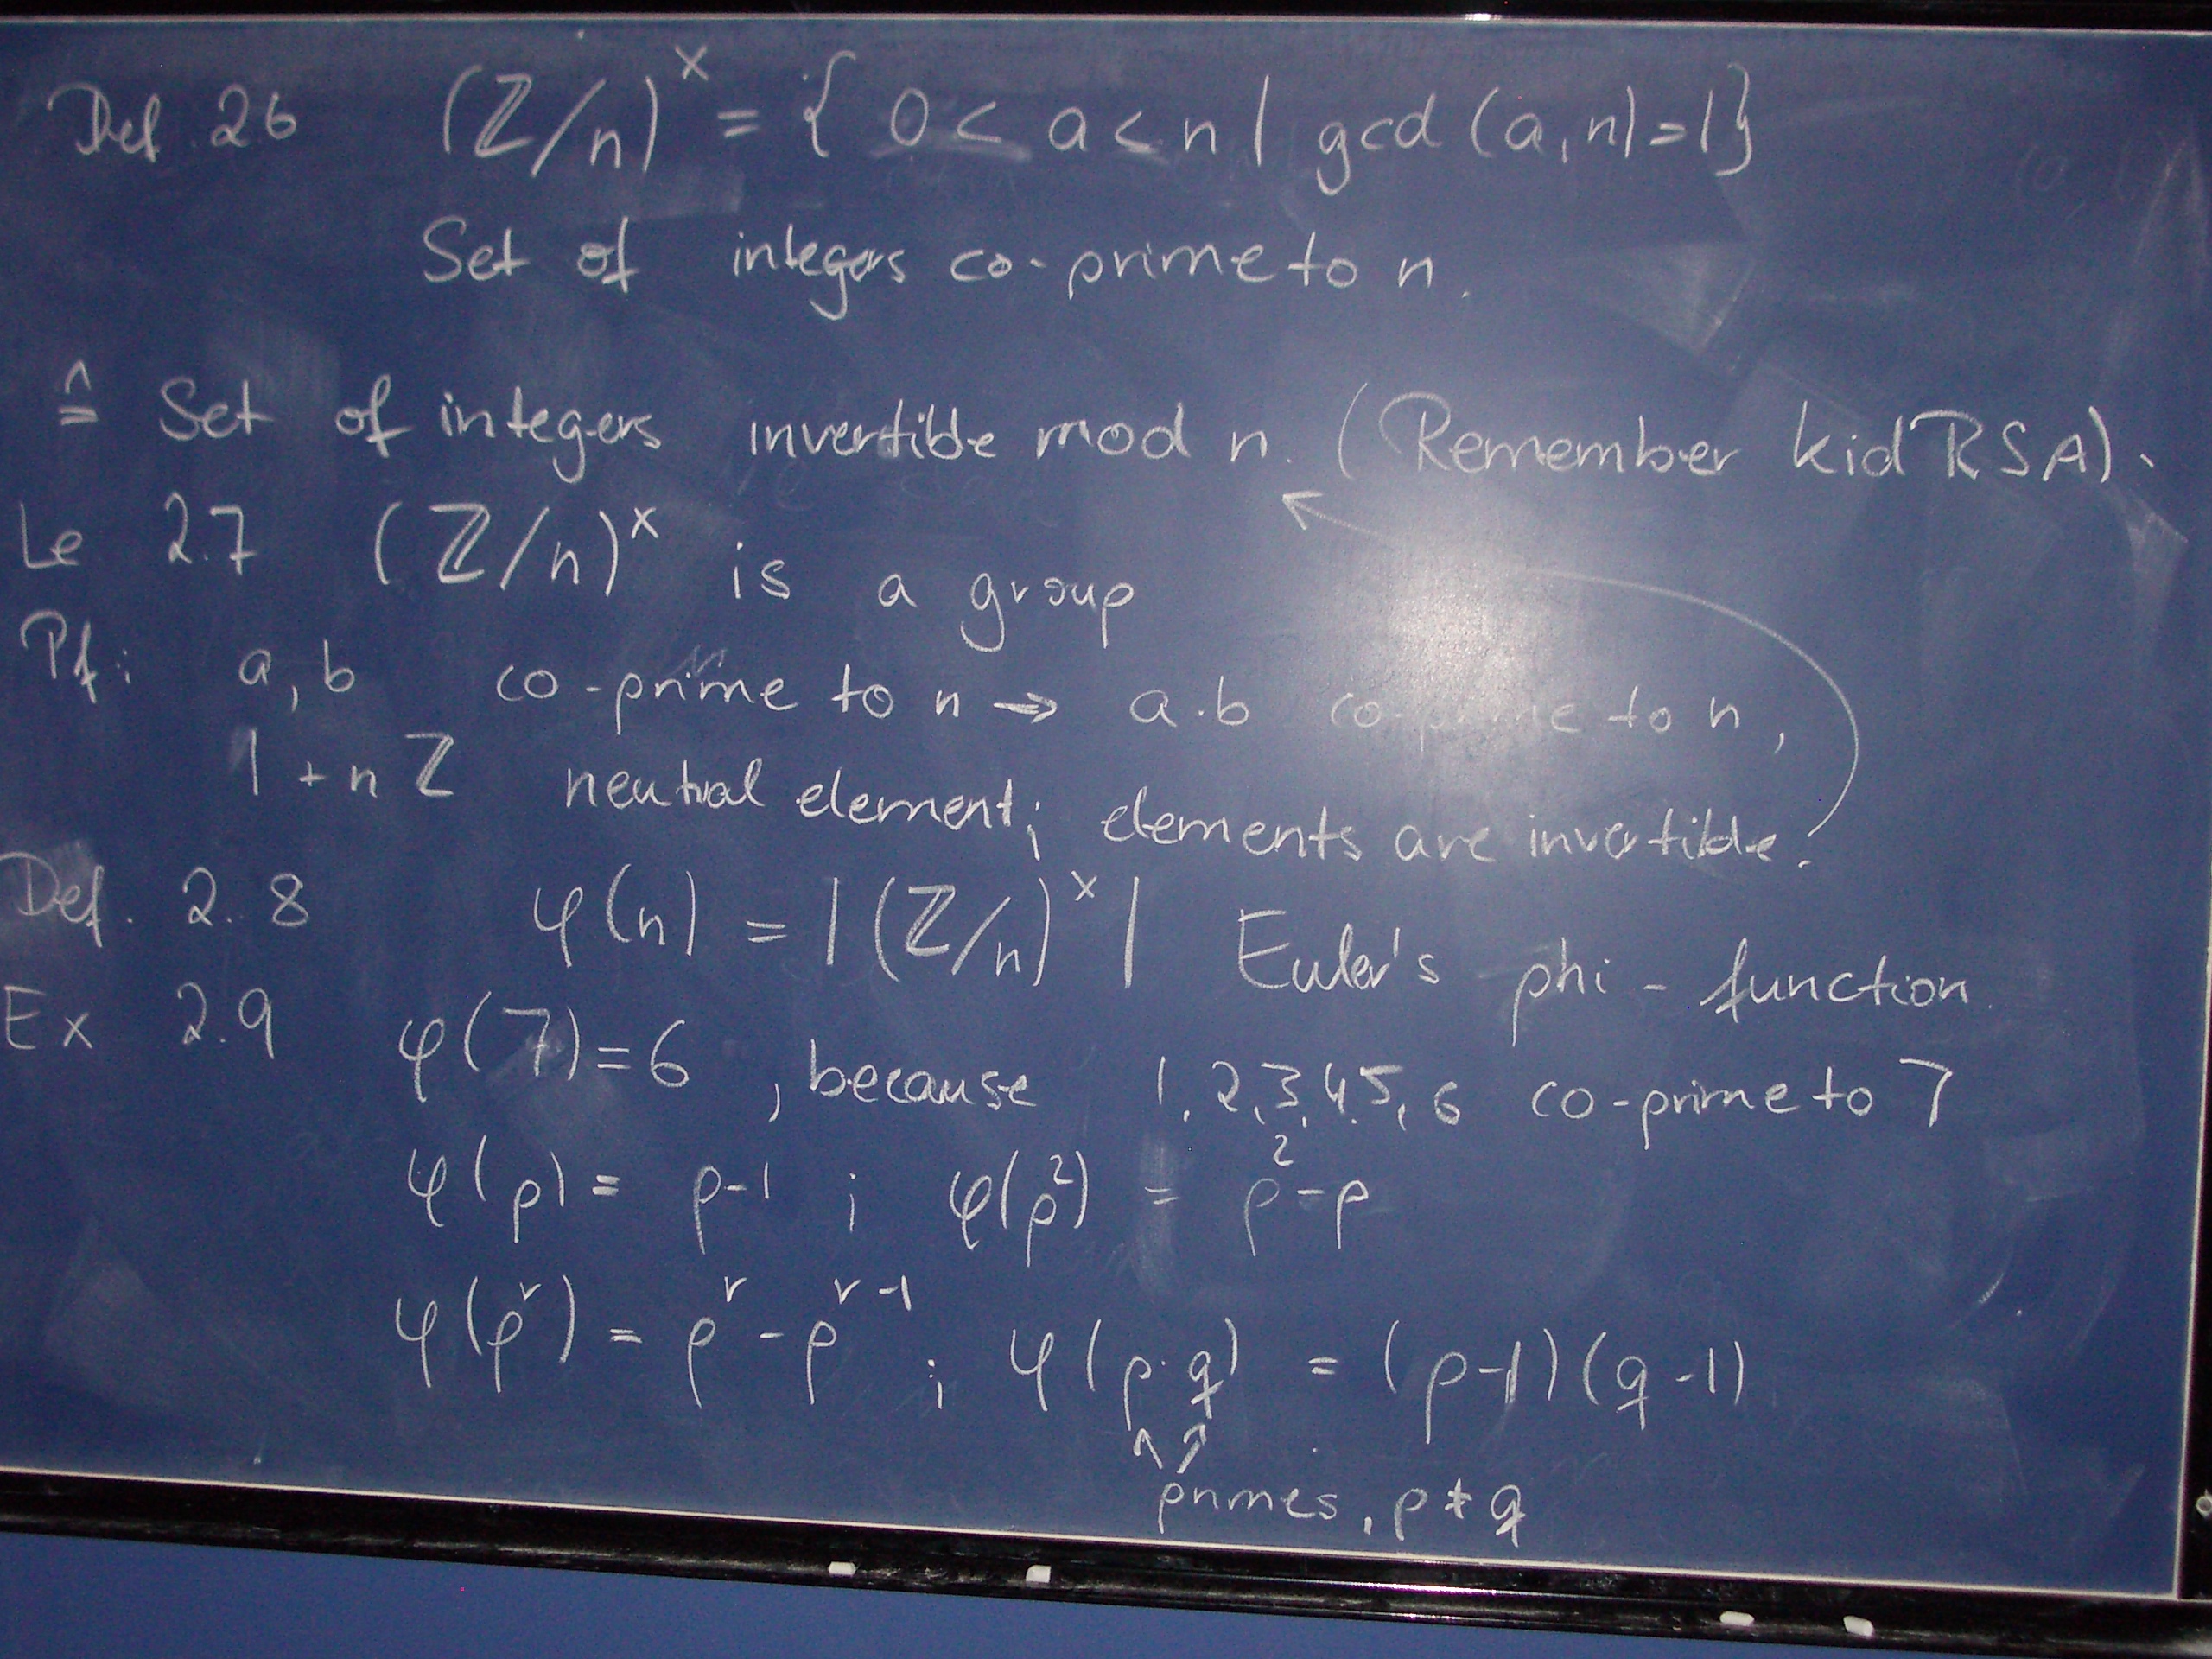 Def. 2.6 (ℤ/n)^× = { 0 < a < n | gcd (a,n) = 1}
Set of integers co-prime to n.
≙ Set of integers invertible mod n. (Remember kid RSA).
Le 2.7 (ℤ/n)^× is a group
Pf: a, b co-prime to n → a·b co-prime to n,
1 + nℤ neutral element; elements are invertible.
Def. 2.8 φ(n) = |(ℤ/n)^×| Euler's phi-function
Ex 2.9 φ(7) = 6, because 1,2,3,4,5,6 co-prime to 7
φ(p) = p-1 ; φ(p²) = p²-p
φ(p^r) = p^r - p^{r-1} ; φ(p·q) = (p-1)(q-1)
primes, p ≠ q